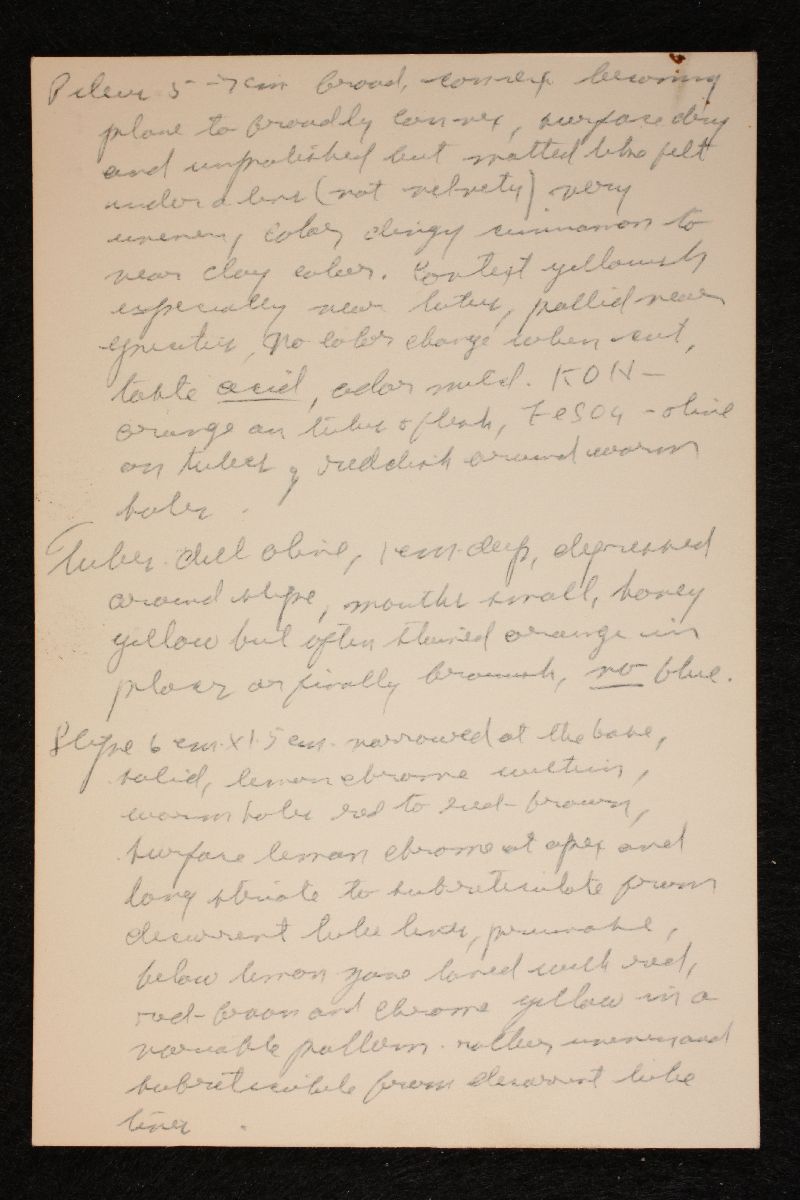 Pileus 5-7cm broad, convex becoming
plane to broadly convex, surface dry
and unpolished but matted like felt
under a lens (not velvety) very
uneven, color dingy cinnamon to
near clay color. Context yellowish
especially near tubes, pallid near
cuticle, No color change when cut,
taste acid, odor mild. KOH —
orange on tubes & flesh, FeSO4 - olive
on tubes, reddish around worm
holes.
Tubes dull olive, 1 cm. deep, depressed
around stipe, mouths small, honey
yellow but often stained orange in
places or finally brownish, no blue.
Stipe 6 cm. X 1.5 cm. narrowed at the base,
solid, lemon chrome within,
worm holes red to red-brown,
surface lemon chrome at apex and
long striate to subreticulate from
decurrent tube lines, pruinose,
below lemon zone with red,
red-brown and chrome yellow in a
variable pattern. rather uneven and
subreticulate from decurrent tube
lines.